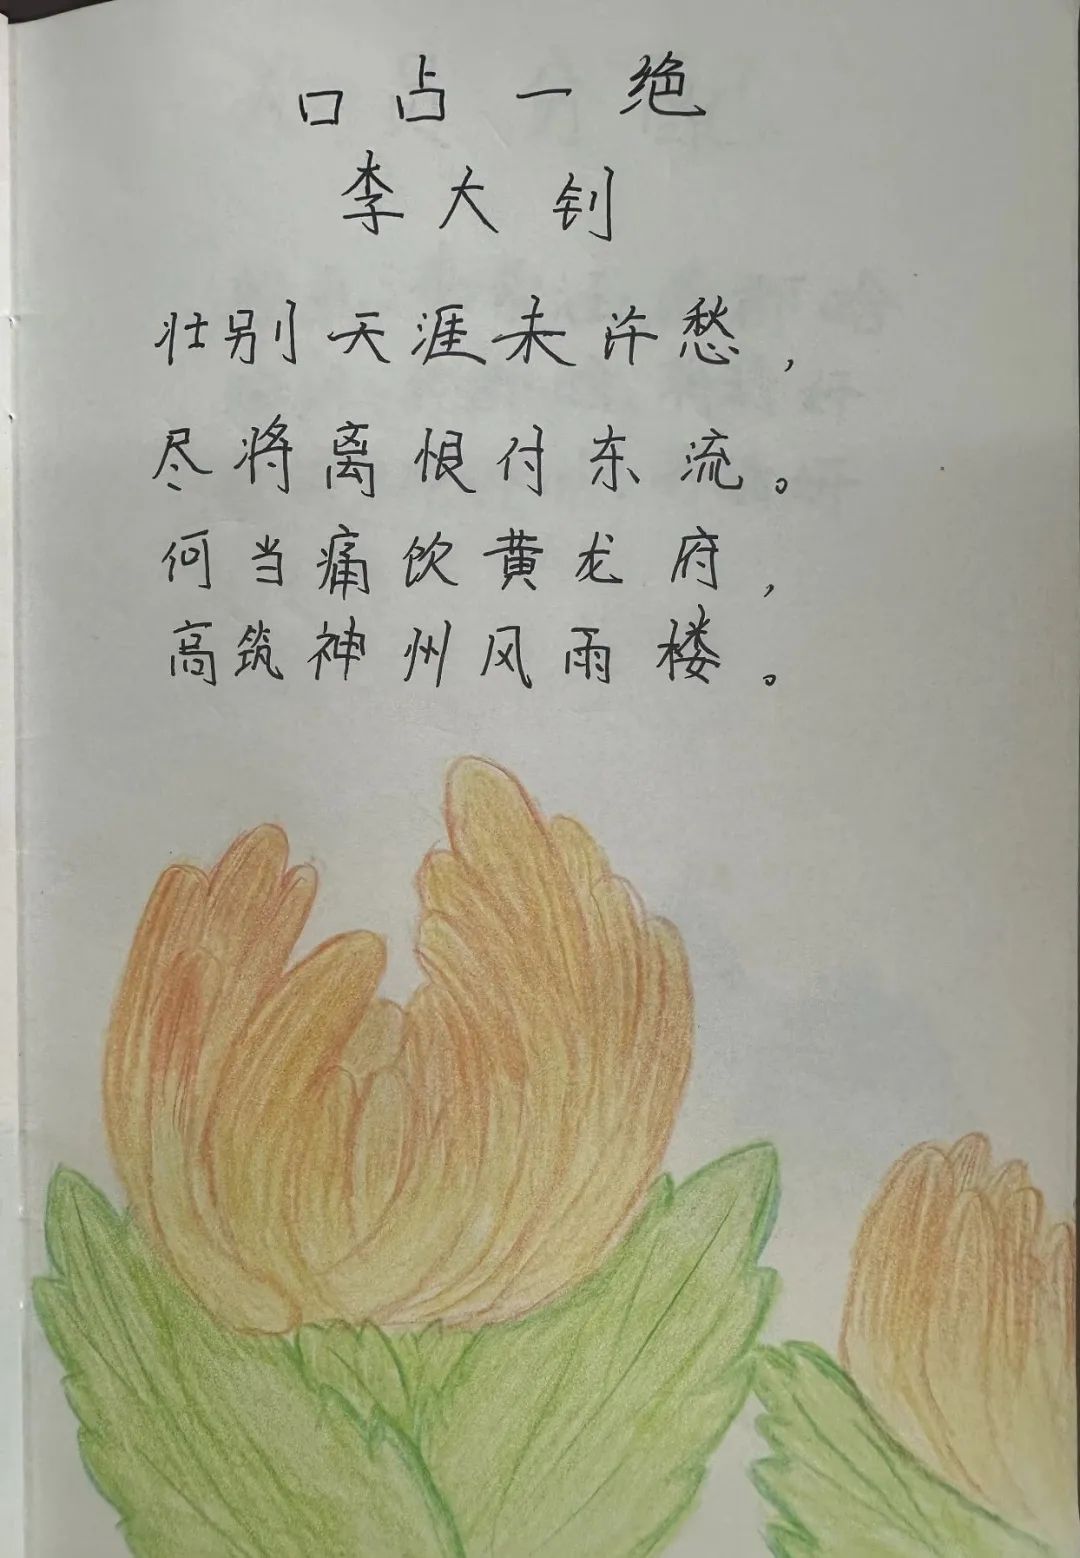 口占一绝
李大钊
壮别天涯未许愁，
尽将离恨付东流。
何当痛饮黄龙府，
高筑神州风雨楼。